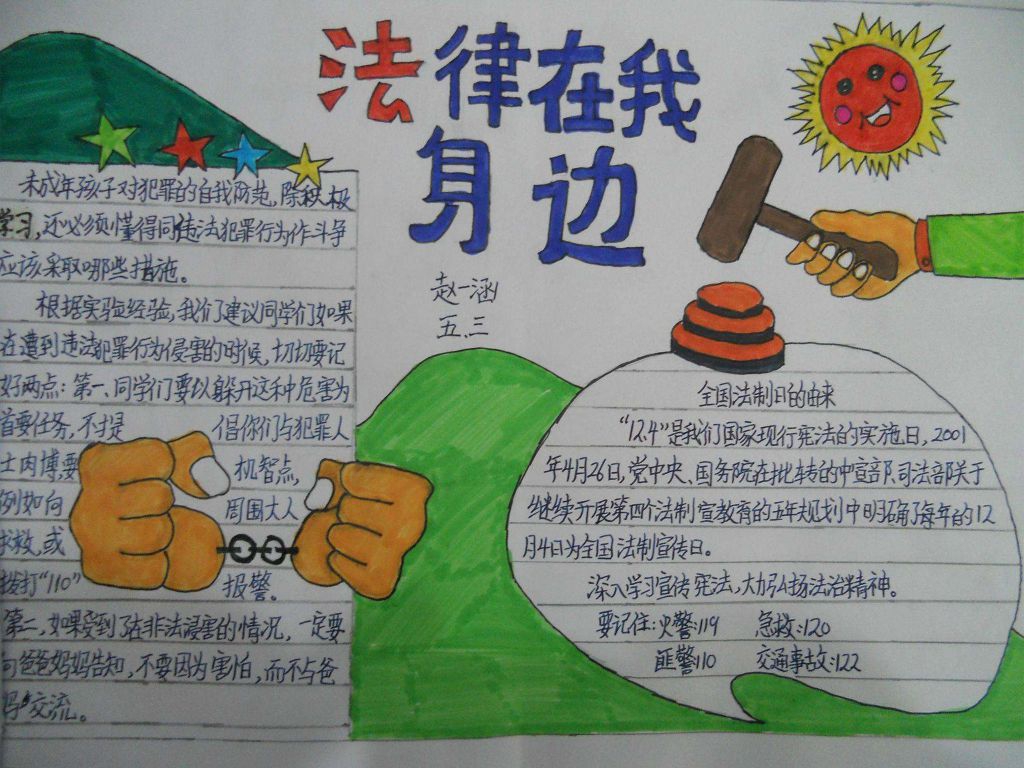 法律在我
身边
赵一涵
五.三
未成年孩子对犯罪的自我防范,除积极
学习,还必须懂得同违法犯罪行为作斗争
应该采取哪些措施。
根据实验经验,我们建议同学们如果
在遭到违法犯罪行为侵害的时候,切切要记
好两点:第一、同学们要以躲开这种危害为
首要任务,不提 倡你们与犯罪人
士肉博,要 机智点,
例如向 周围大人
求救,或
拨打"110" 报警。
第二、如果受到了在非法浸害的情况,一定要
向爸爸妈妈告知,不要因为害怕,而不与爸
妈交流。
全国法制日的由来
"12.4"是我们国家现行宪法的实施日,2001
年4月26日,党中央、国务院在批转的中宣部、司法部关于
继续开展第四个法制宣教育的五年规划中明确了每年的12
月4日为全国法制宣传日。
深入学习宣传宪法,大力弘扬法治精神。
要记住:火警:119 急救:120
匪警:110 交通事故:122